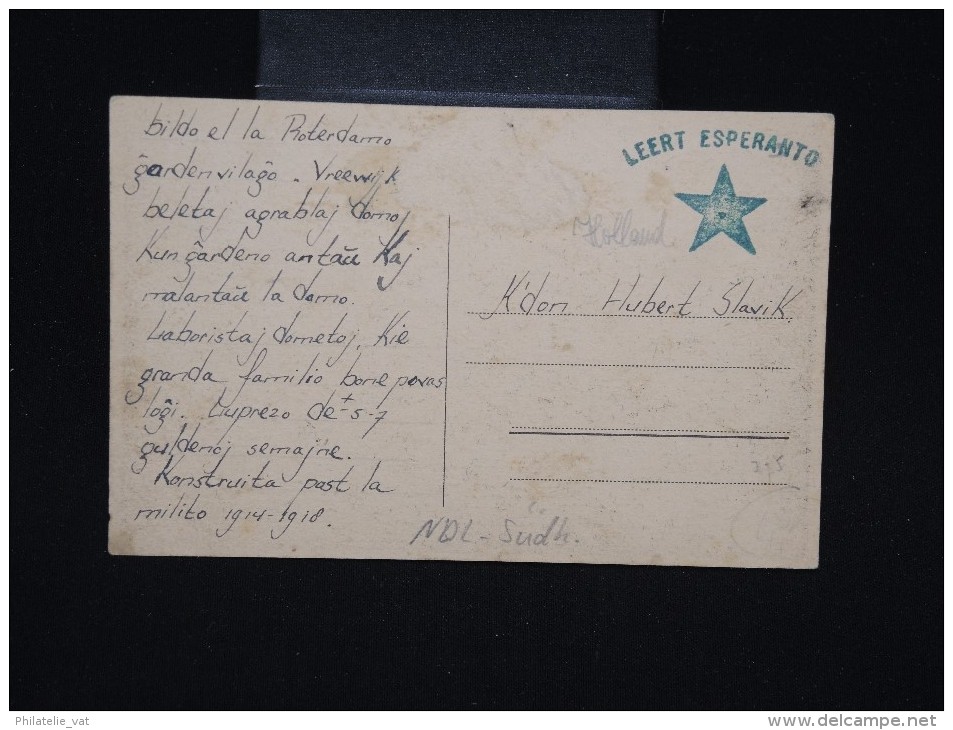 bildo el la Roterdamo
ĝardenvilaĝo - Vreewijk
beletaj agrablaj domoj
Kun ĝardeno antaŭ Kaj
malantaŭ la domo.
Laboristaj dometoj, Kie
granda familio bone povas
loĝi. Luprezo de ± 5-7
guldenoj semajne.
Konstruita post la
milito 1914-1918.
LEERT ESPERANTO
Holland
K'don Hubert Šlavik
NDL - Südh.
Philatelie_vat
www.delcampe.net